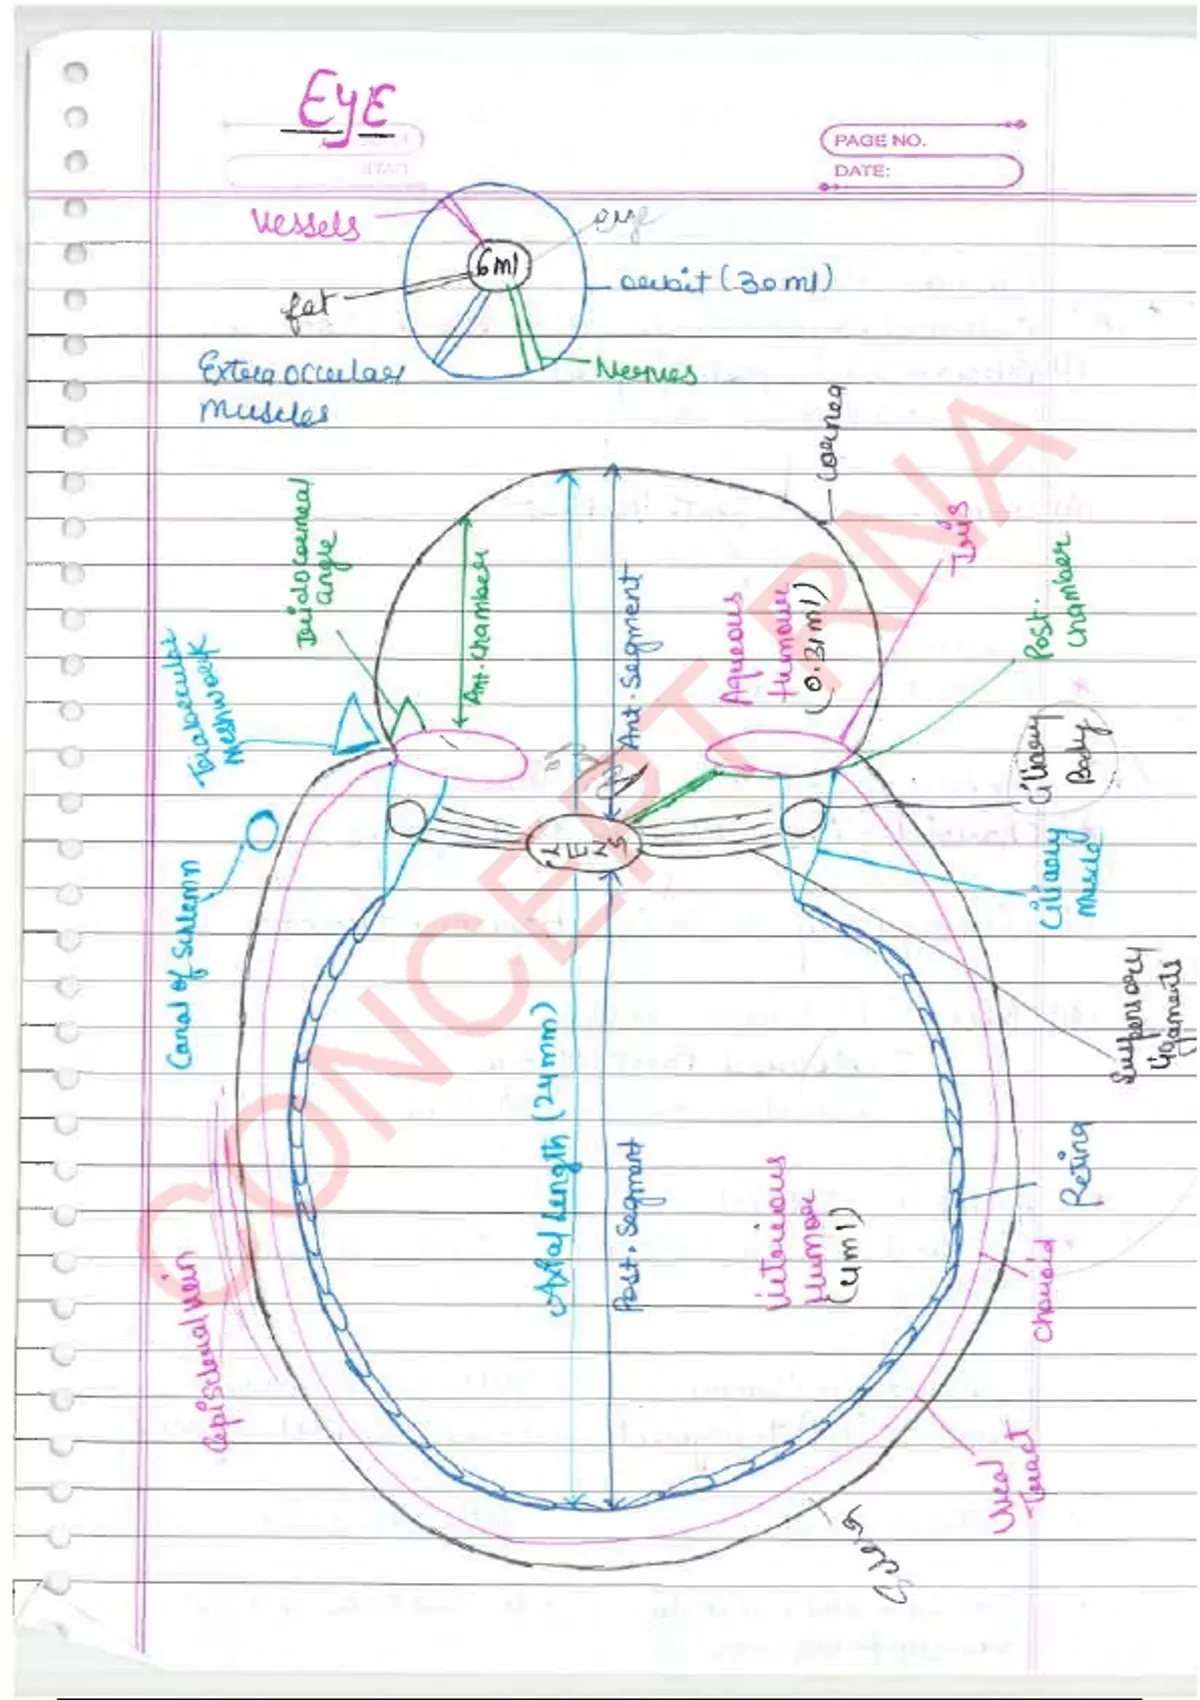 EyE
PAGE NO.
DATE:
Vessels
eye
6ml
orbit (30ml)
fat
Extraoccular
Muscles
Nerves
Cornea
Iridocorneal
angle
Trabecular
Meshwork
Ant. Chamber
Ant. Segment
Aqueous
Humour
(0.31ml)
Iris
Post.
Chamber
Ciliary
Body
LENS
Ciliary
Muscle
Canal of Schlemn
Suspensory
ligaments
Axial Length (24mm)
Post. Segment
Vitreious
Humour
(4ml)
Retina
Choroid
Episcleral Vein
Uveal
Tract
Sclera
CONCEPT RNA